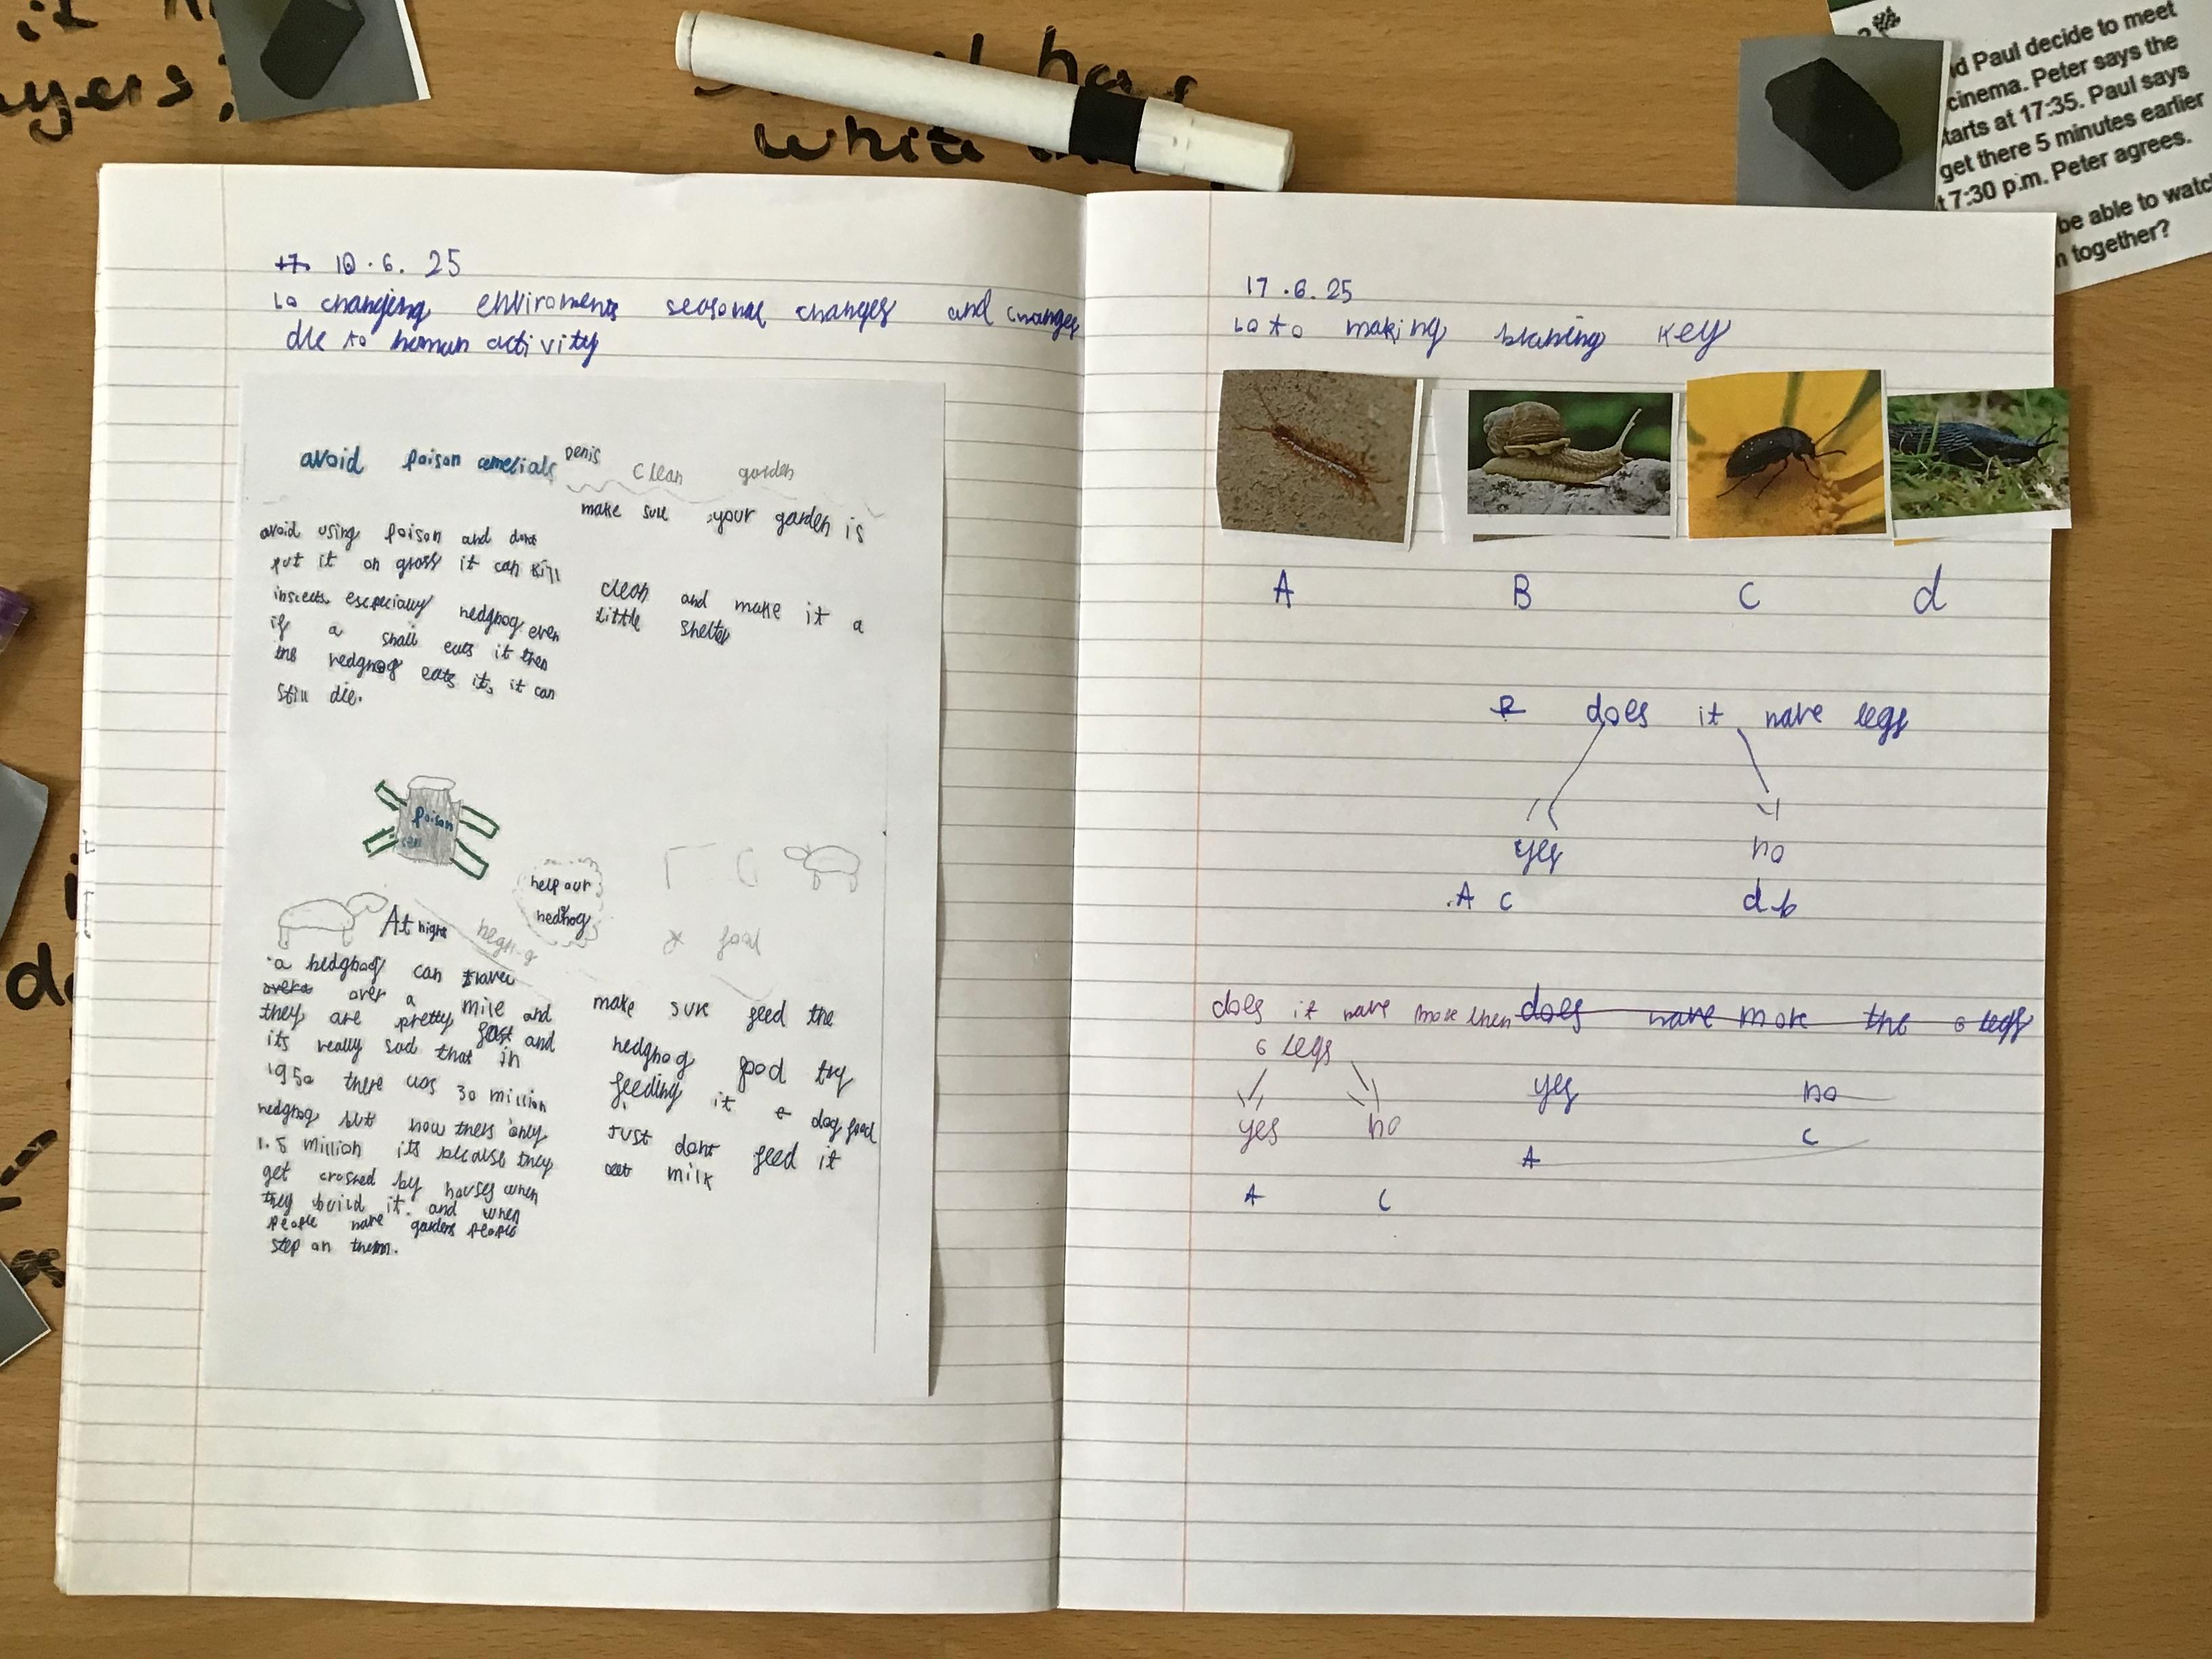 it
yers;
has
white
d Paul decide to meet
cinema. Peter says the
tarts at 17:35. Paul says
get there 5 minutes earlier
t 7:30 p.m. Peter agrees.
be able to watch
together?
17. 10.6.25
Lo changing enviroments seasonal changes and changes
due to human activity
avoid poison cemelials
avoid using poison and dont
put it on grass it can kill
insects. especially hedghog even
if a snail eats it then
the hedghog eats it, it can
still die.
Denis
Clean garden
make sure your garden is
clean and make it a
little shelter
poison
help our
hedhog
At night
a hedghog can travel
over a mile and
they are pretty fast and
its really sad that in
1950 there was 30 million
hedghog but now thers only
1.5 million its because they
get crashed by houses when
they build it. and when
people have gardens people
step on them.
food
make sure feed the
hedghog good try
feeding it dog food
Just dont feed it
milk
17.6.25
Lo to making braning key
A B C d
does it have legs
yes no
A C d b
does it have more then does have more the 6 legs
6 legs
yes no
yes no
A C
A C